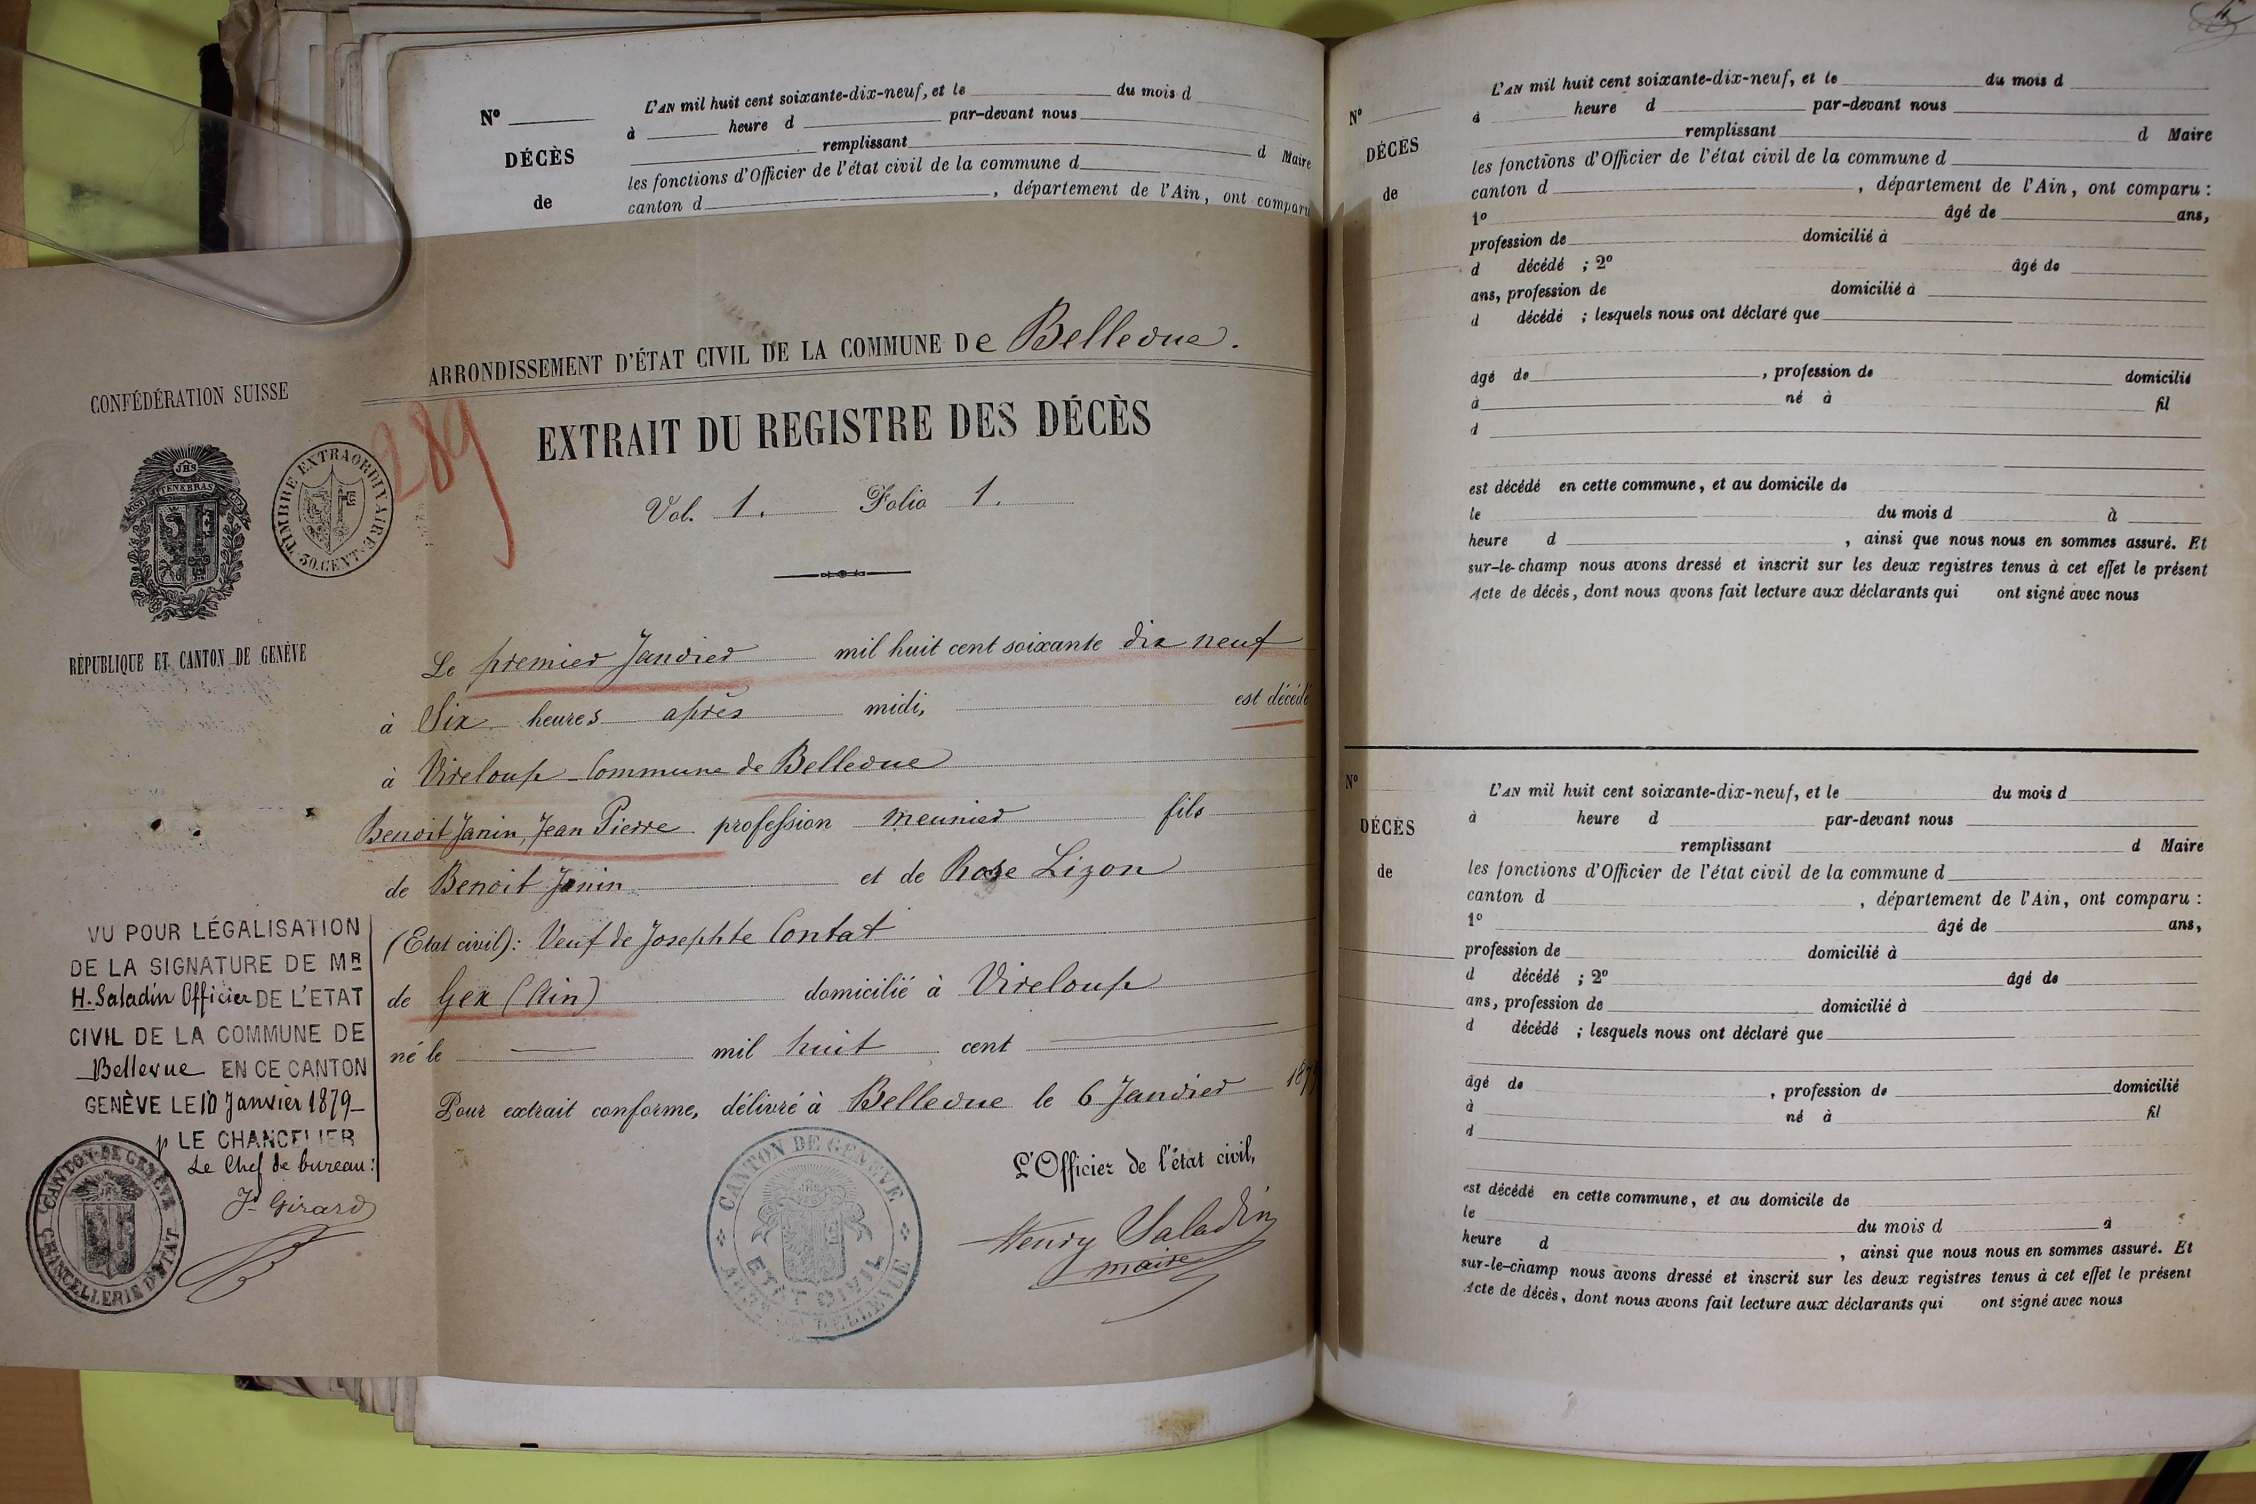 N°
L'AN mil huit cent soixante-dix-neuf, et le du mois d
à heure d par-devant nous
DÉCÈS
remplissant d Maire
les fonctions d'Officier de l'état civil de la commune d
de
canton d , département de l'Ain, ont comparu
CONFÉDÉRATION SUISSE
JHS
POST TENEBRAS LUX
TIMBRE EXTRAORDINAIRE
30. CENT.
RÉPUBLIQUE ET CANTON DE GENÈVE
ARRONDISSEMENT D'ÉTAT CIVIL DE LA COMMUNE De Bellevue.
289
EXTRAIT DU REGISTRE DES DÉCÈS
Vol. 1. Folio 1.
Le premier Janvier mil huit cent soixante dix neuf
à Six heures après midi, est décédé
à Vireloup - Commune de Bellevue
Benoit Janin, Jean Pierre profession meunier fils
de Benoit Janin et de Rose Lizon
(Etat civil): Veuf de Josephte Contat
de Gex (Ain) domicilié à Vireloup
né le — mil huit cent —
Pour extrait conforme, délivré à Bellevue le 6 Janvier 1879
L'Officier de l'état civil,
Henry Saladin
maire
CANTON DE GENÈVE
ETAT CIVIL
BELLEVUE
VU POUR LÉGALISATION
DE LA SIGNATURE DE MR
H. Saladin Officier DE L'ETAT
CIVIL DE LA COMMUNE DE
Bellevue EN CE CANTON
GENÈVE LE 10 Janvier 1879
p LE CHANCELIER
Le Chef de bureau:
Jn Girard
CANTON DE GENÈVE
CHANCELLERIE D'ETAT
N°
L'AN mil huit cent soixante-dix-neuf, et le du mois d
à heure d par-devant nous
DÉCÈS
remplissant d Maire
les fonctions d'Officier de l'état civil de la commune d
de
canton d , département de l'Ain, ont comparu :
1° âgé de ans,
profession de domicilié à
d décédé ; 2° âgé de
ans, profession de domicilié à
d décédé ; lesquels nous ont déclaré que
âgé de , profession de domicilié
à né à fil
d
est décédé en cette commune, et au domicile de
le du mois d à
heure d , ainsi que nous nous en sommes assuré. Et
sur-le-champ nous avons dressé et inscrit sur les deux registres tenus à cet effet le présent
Acte de décès, dont nous avons fait lecture aux déclarants qui ont signé avec nous
N°
L'AN mil huit cent soixante-dix-neuf, et le du mois d
à heure d par-devant nous
DÉCÈS
remplissant d Maire
les fonctions d'Officier de l'état civil de la commune d
de
canton d , département de l'Ain, ont comparu :
1° âgé de ans,
profession de domicilié à
d décédé ; 2° âgé de
ans, profession de domicilié à
d décédé ; lesquels nous ont déclaré que
âgé de , profession de domicilié
à né à fil
d
est décédé en cette commune, et au domicile de
le du mois d à
heure d , ainsi que nous nous en sommes assuré. Et
sur-le-champ nous avons dressé et inscrit sur les deux registres tenus à cet effet le présent
Acte de décès, dont nous avons fait lecture aux déclarants qui ont signé avec nous